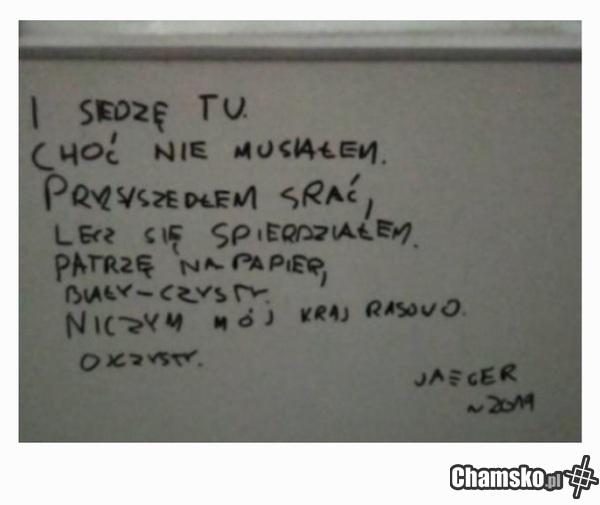 I SIEDZĘ TU.
CHOĆ NIE MUSIAŁEM.
PRZYSZEDŁEM SRAĆ,
LECZ SIĘ SPIERDZIAŁEM.
PATRZĘ NA PAPIER,
BIAŁY-CZYSTY.
NICZYM MÓJ KRAJ RASOVO.
OKZYSTY.
JAEGER
~2019
Chamsko.pl